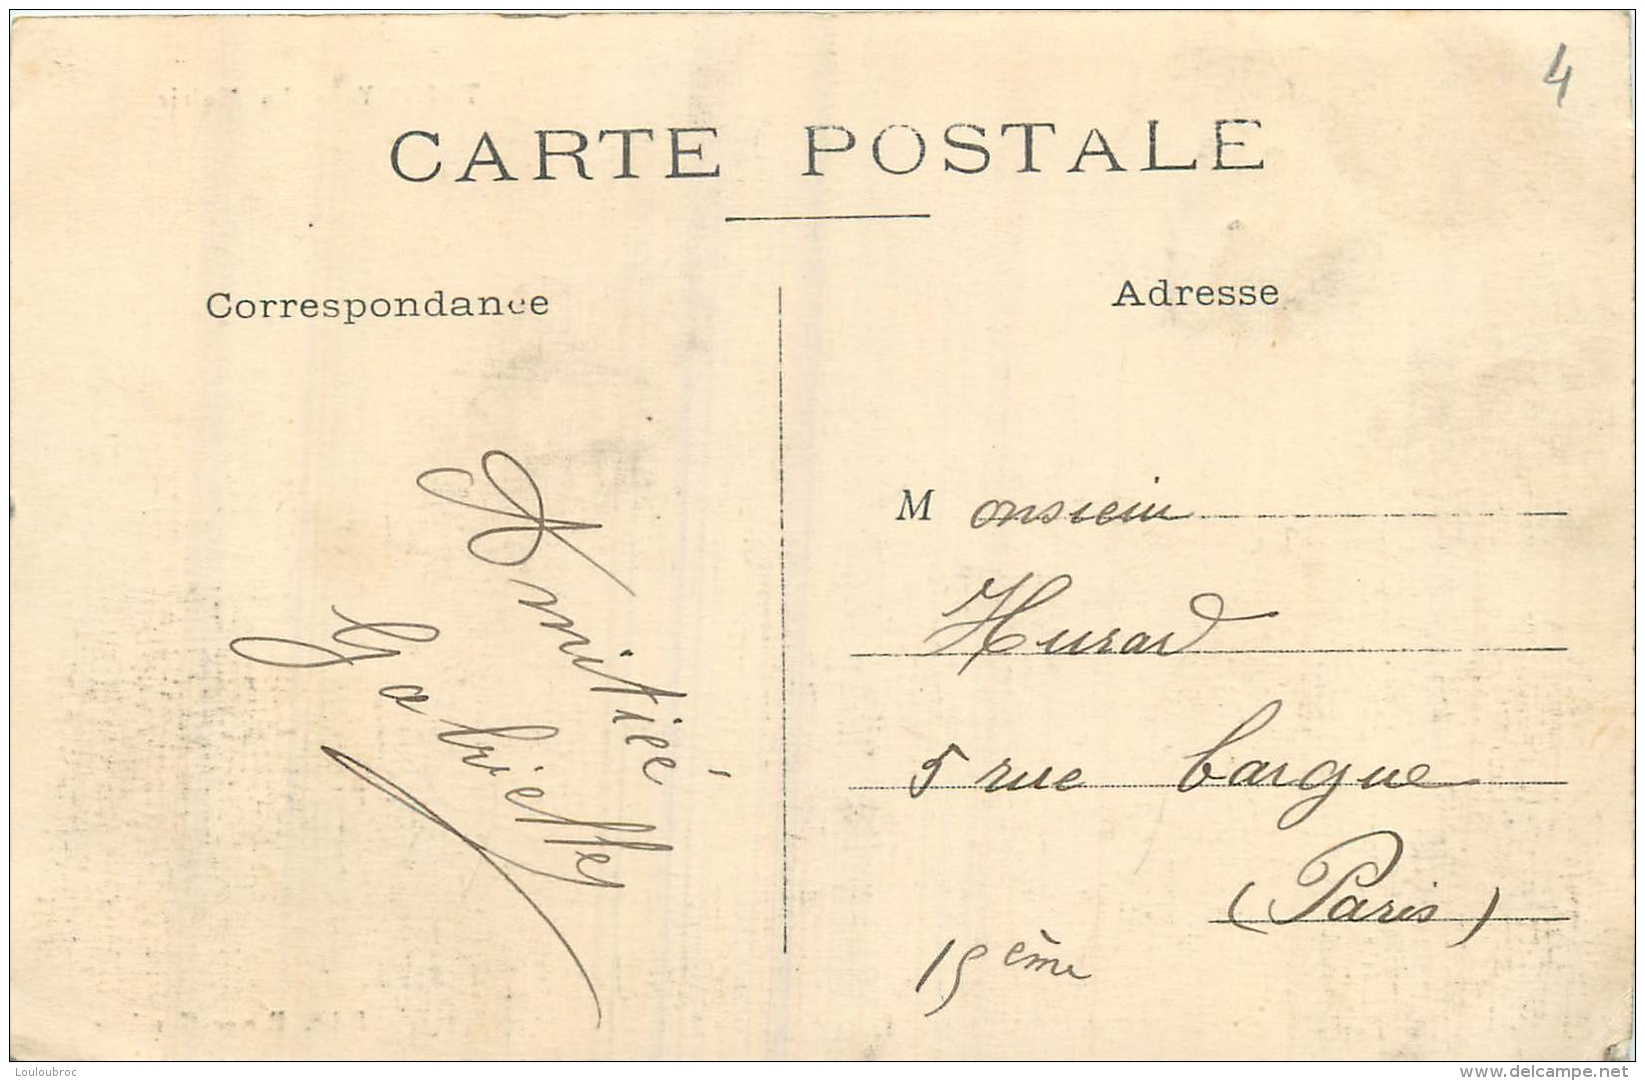 4
CARTE POSTALE
Correspondance
Adresse
Amitié
Gabrielle
Monsieur
Hurard
5 rue Bargue
(Paris)
15ème
Louloubroc
www.delcampe.net